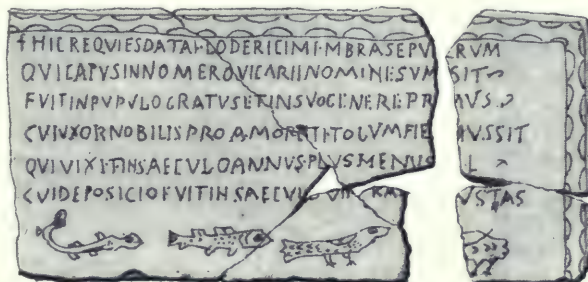 †HICREQVIESDATAHLODERICIMEMBRASEPV ERVM
QVICAPVSINNOMEROVICARIINOMINESVM SIT
FVITINPVPVLOGRATVSETINSVOGENEREPR MVS
CVIVXORNOBILISPROAMORETITOLVMFIE IVSSIT
QVIVIXITINSAECVLOANNVSPLVSMENVS L
CVIDEPOSICIOFVITINSAECVLOVII KA VSTAS